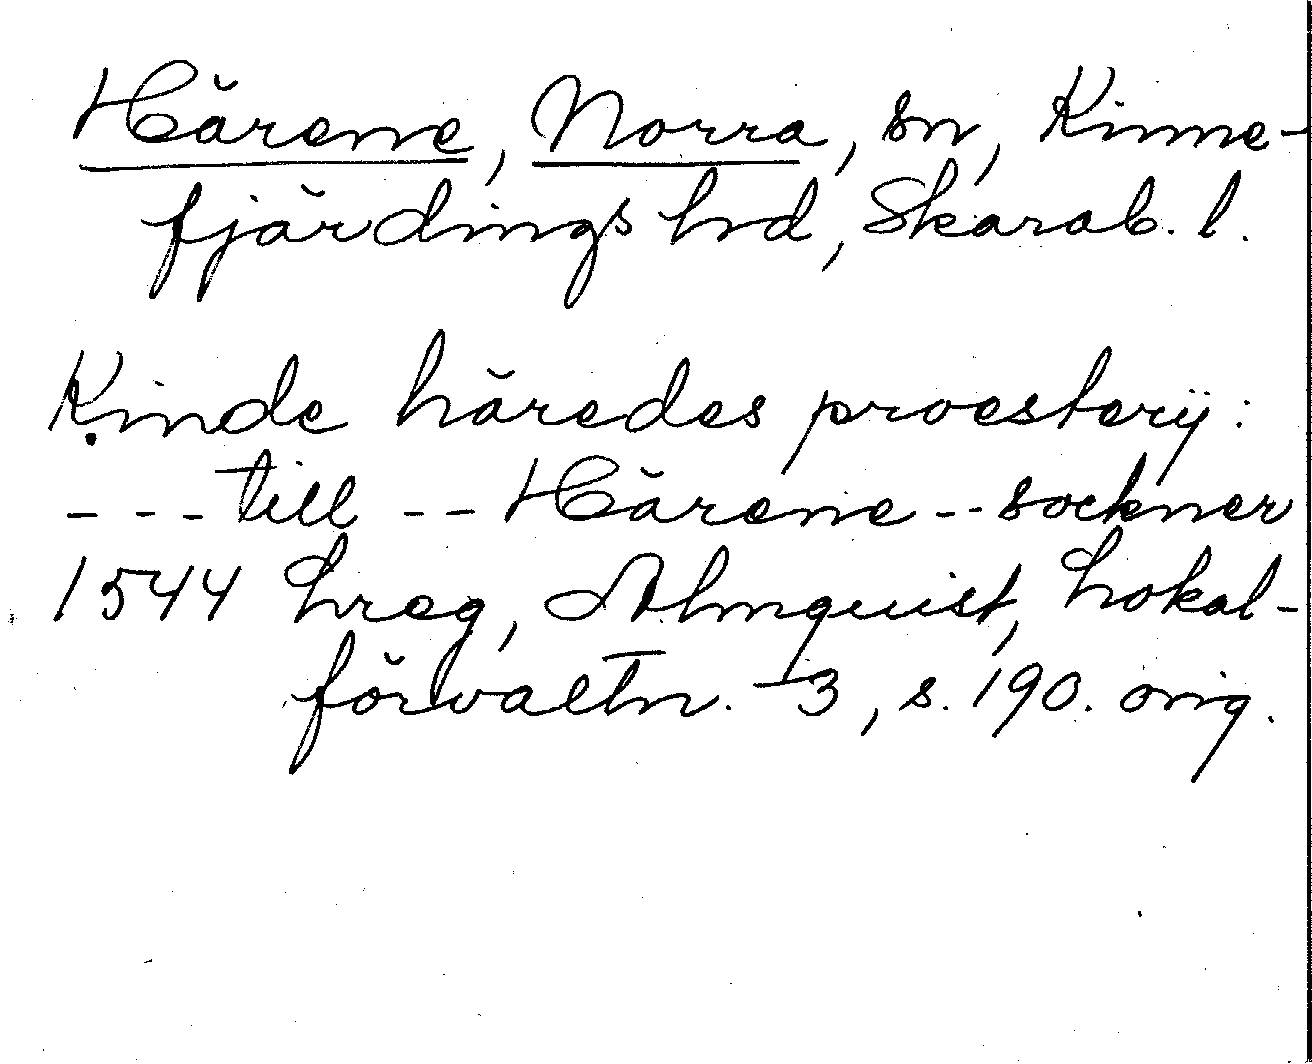 Härene, Norra, sn, Kinne-
fjärdings hrd, Skarab. l.
Kinde häredes proesterij:
- - - till - - Härene - - sockner
1544 Lreg, Almquist, Lokal-
förvaltn. 3, s. 190. orig.